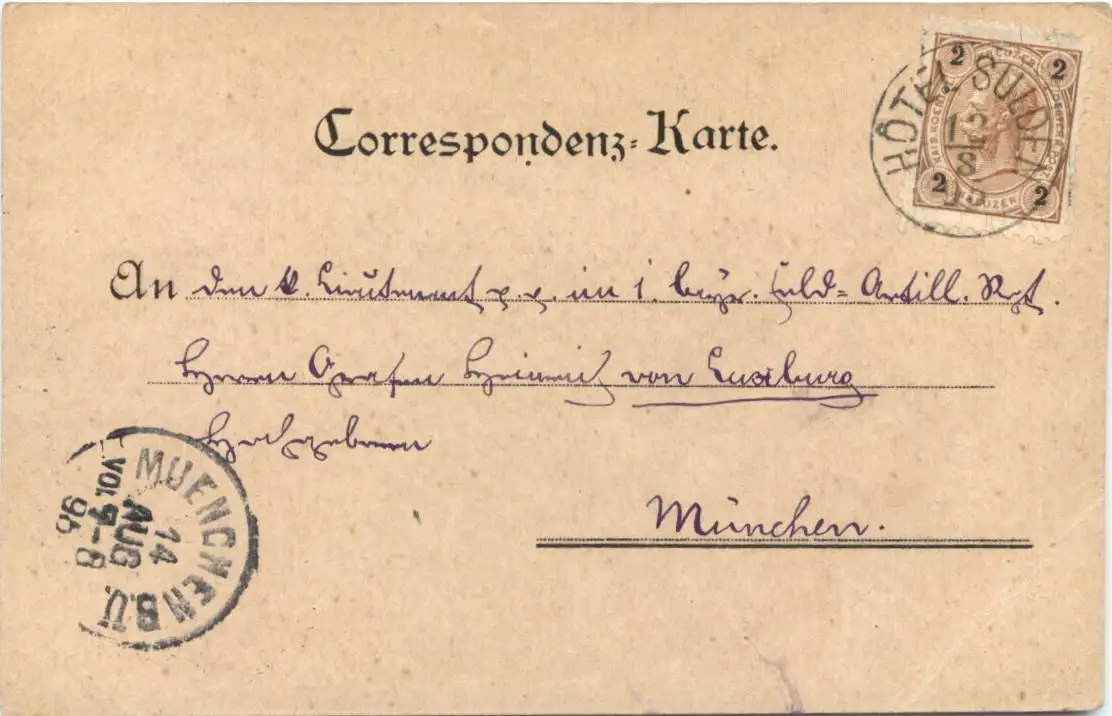 Correspondenz-Karte.
2 KREUZER 2
HÔTEL SULDEN
12
8
2 KREUZER 2
An den k. Lieutenant p. p. im 1. bayr. Feld-Artill. Rgt.
Herrn Grafen Heinrich von Luxburg
Hochgeboren
München.
MUENCHEN B.U.
14
AUG
VOR. 7-8
96